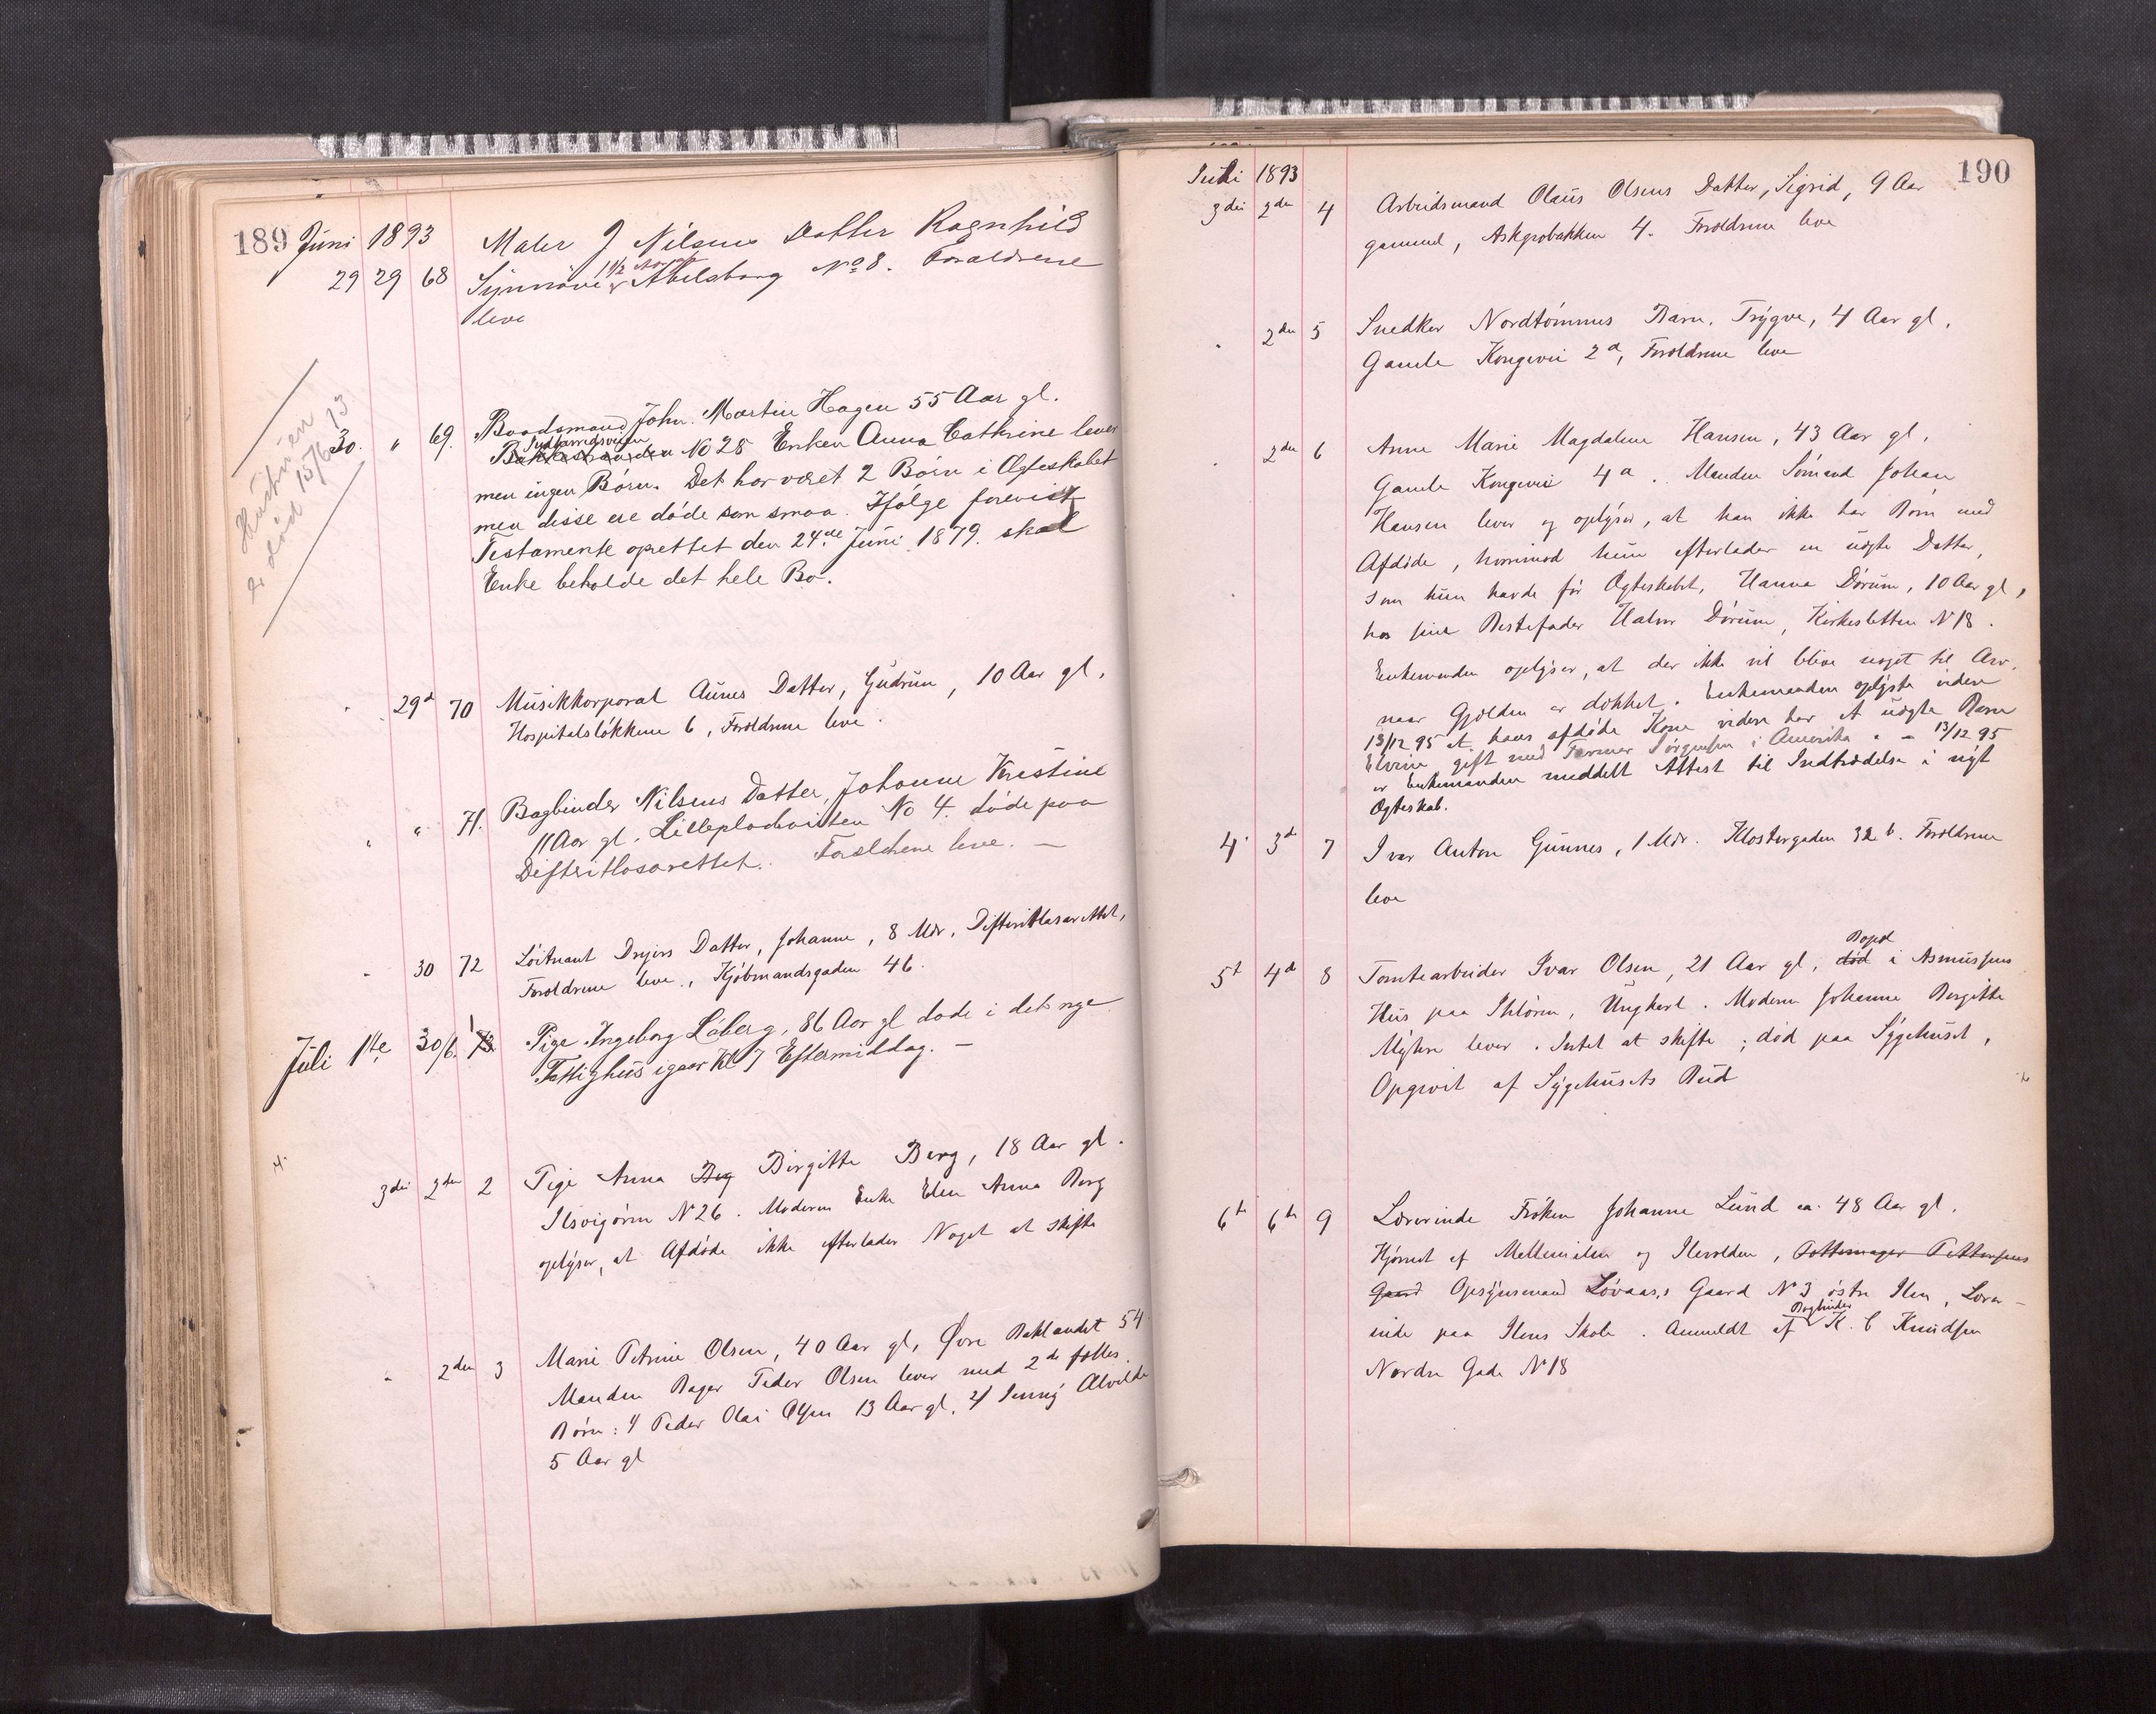 189 Juni 1893
29 29 68 Maler J Nilsens Datter Ragnhild
Synnöve 1 1/2 Aar gl Abelsborg No 8. Foraldrene
leve
Hustruen
er död 15/6 13
30. " 69. Baadsmand John. Martin Hagen 55 Aar gl.
Bakkestranden Indherredsveien No 28 Enken Anna Cathrine lever
men ingen Börn. Det har været 2 Börn i Ægteskabet
men disse ere döde som smaa. Ifölge forevist
Testamente oprettet den 24de Juni 1879. skal
Enke beholde det hele Bo.
" 29d 70 Musikkorporal Aunes Datter, Gudrun, 10 Aar gl,
Hospitalslökkene 6, Forældrene leve.
" " 71. Bogbinder Nilsens Datter, Johanne Kristine
11 Aar gl. Lillepladveiten No 4. döde paa
Difteritlasarettet. Forældrene leve. —
" 30 72 Löitnant Dryers Datter, Johanne, 8 Mdr, Difteritlasarettet,
Forældrene leve., Kjöbmandsgaden 46.
Juli 1ste 30/6. 1 73. Pige Ingeborg Löberg, 86 Aar gl döde i det nye
Fattighus igaar Kl 7 Eftermiddag. —
3die 2den 2 Pige Anna Beg Birgitte Berg, 18 Aar gl.
Ilsvigören N 26. Moderen Enke Elen Anna Berg
oplyser, at Afdöde ikke efterlader Noget at skifte
" 2den 3 Marie Petrine Olsen, 40 Aar gl, Øvre Baklandet 54.
Manden Bager Peder Olsen lever med 2de fælles
Börn: 1/ Peder Olai Olsen 13 Aar gl, 2/ Jenny Alvilde
5 Aar gl
190
Juli 1893
3die 2den 4 Arbeidsmand Olaus Olsens Datter, Sigrid, 9 Aar
gammel, Askgrobakken 4. Forældrene leve
" 2den 5 Snedker Nordtömmes Barn, Trygve, 4 Aar gl,
Gamle Kongevei 2a, Forældrene leve
" 2den 6 Anne Marie Magdalene Hansen, 43 Aar gl,
Gamle Kongevei 4a. Manden Sömand Johan
Hansen lever og oplyser, at han ikke har Börn med
Afdöde, hvorimod hun efterlader en uægte Datter,
som hun havde för Ægteskabet, Hanna Dörum, 10 Aar gl,
hos sine Bestefader Halvor Dörum, Kirkesletten N 18.
Enkemanden oplyser, at der ikke vil blive noget til Arv,
naar Gjælden er dækket. Enkemanden oplyste videre
13/12 95 at hans afdöde Kone videre har et uægte Barn
Elvine gift med Farmer Jörgensen i Amerika " – 13/12 95
er Enkemanden meddelt Attest til Indtrædelse i nyt
Ægteskab.
4. 3d 7 Ivar Anton Gunnes, 1 Mdr. Klostergaden 32 b. Forældrene
leve
5t 4d 8 Tomtearbeider Ivar Olsen, 21 Aar gl, död Bopæl i Asmussens
Hus paa Ihlören, Ungkarl. Moderen Johanne Bergitte
lever. Intet at skifte; död paa Sygehuset,
Opgivet af Sygehusets Bud
6t 6te 9 Lærerinde Fröken Johanne Lund ca. 48 Aar gl,
Hjörnet af Mellemilen og Ilevolden, Pottemager Pettersens
Gaard Opsynsmand Lövaas,s Gaard N 3 östre Ilen, Lærer-
inde paa Ilens Skole. Anmeldt af Bogbinder K. C Knudsen
Nordre Gade N 18